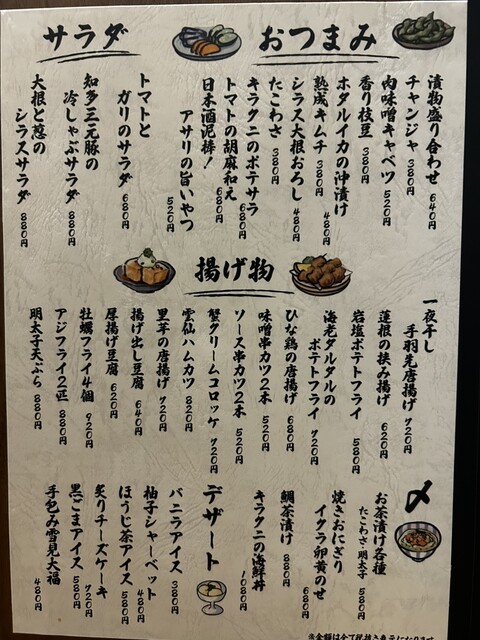 おつまみ
漬物盛り合わせ 640円
チャンジャ 380円
肉味噌キャベツ 520円
香り枝豆 380円
ホタルイカの沖漬け 480円
熟成キムチ 380円
シラス大根おろし 480円
たこわさ 380円
キラクニのポテサラ 680円
トマトの胡麻和え 680円
日本酒泥棒!
アサリの旨いやつ 520円
サラダ
トマトと
ガリのサラダ 680円
知多三元豚の
冷しゃぶサラダ 880円
大根と葱の
シラスサラダ 880円
揚げ物
一夜干し
手羽先唐揚げ 720円
蓮根の挟み揚げ 620円
岩塩ポテトフライ 580円
海老タルタルの
ポテトフライ 720円
ひな鶏の唐揚げ 680円
味噌串カツ2本 520円
ソース串カツ2本 520円
蟹クリームコロッケ 720円
雲仙ハムカツ 820円
里芋の唐揚げ 720円
揚げ出し豆腐 640円
厚揚げ豆腐 620円
牡蠣フライ4個 920円
アジフライ2匹 880円
明太子天ぷら 880円
〆
お茶漬け各種
たこわさ・明太子 580円
焼きおにぎり
イクラ卵黄のせ 680円
鯛茶漬け 880円
キラクニの海鮮丼 1080円
デザート
バニラアイス 380円
柚子シャーベット 480円
ほうじ茶アイス 580円
炙りチーズケーキ 720円
黒ごまアイス 580円
手包み雪見大福 480円
※金額は全て税抜き表示になります